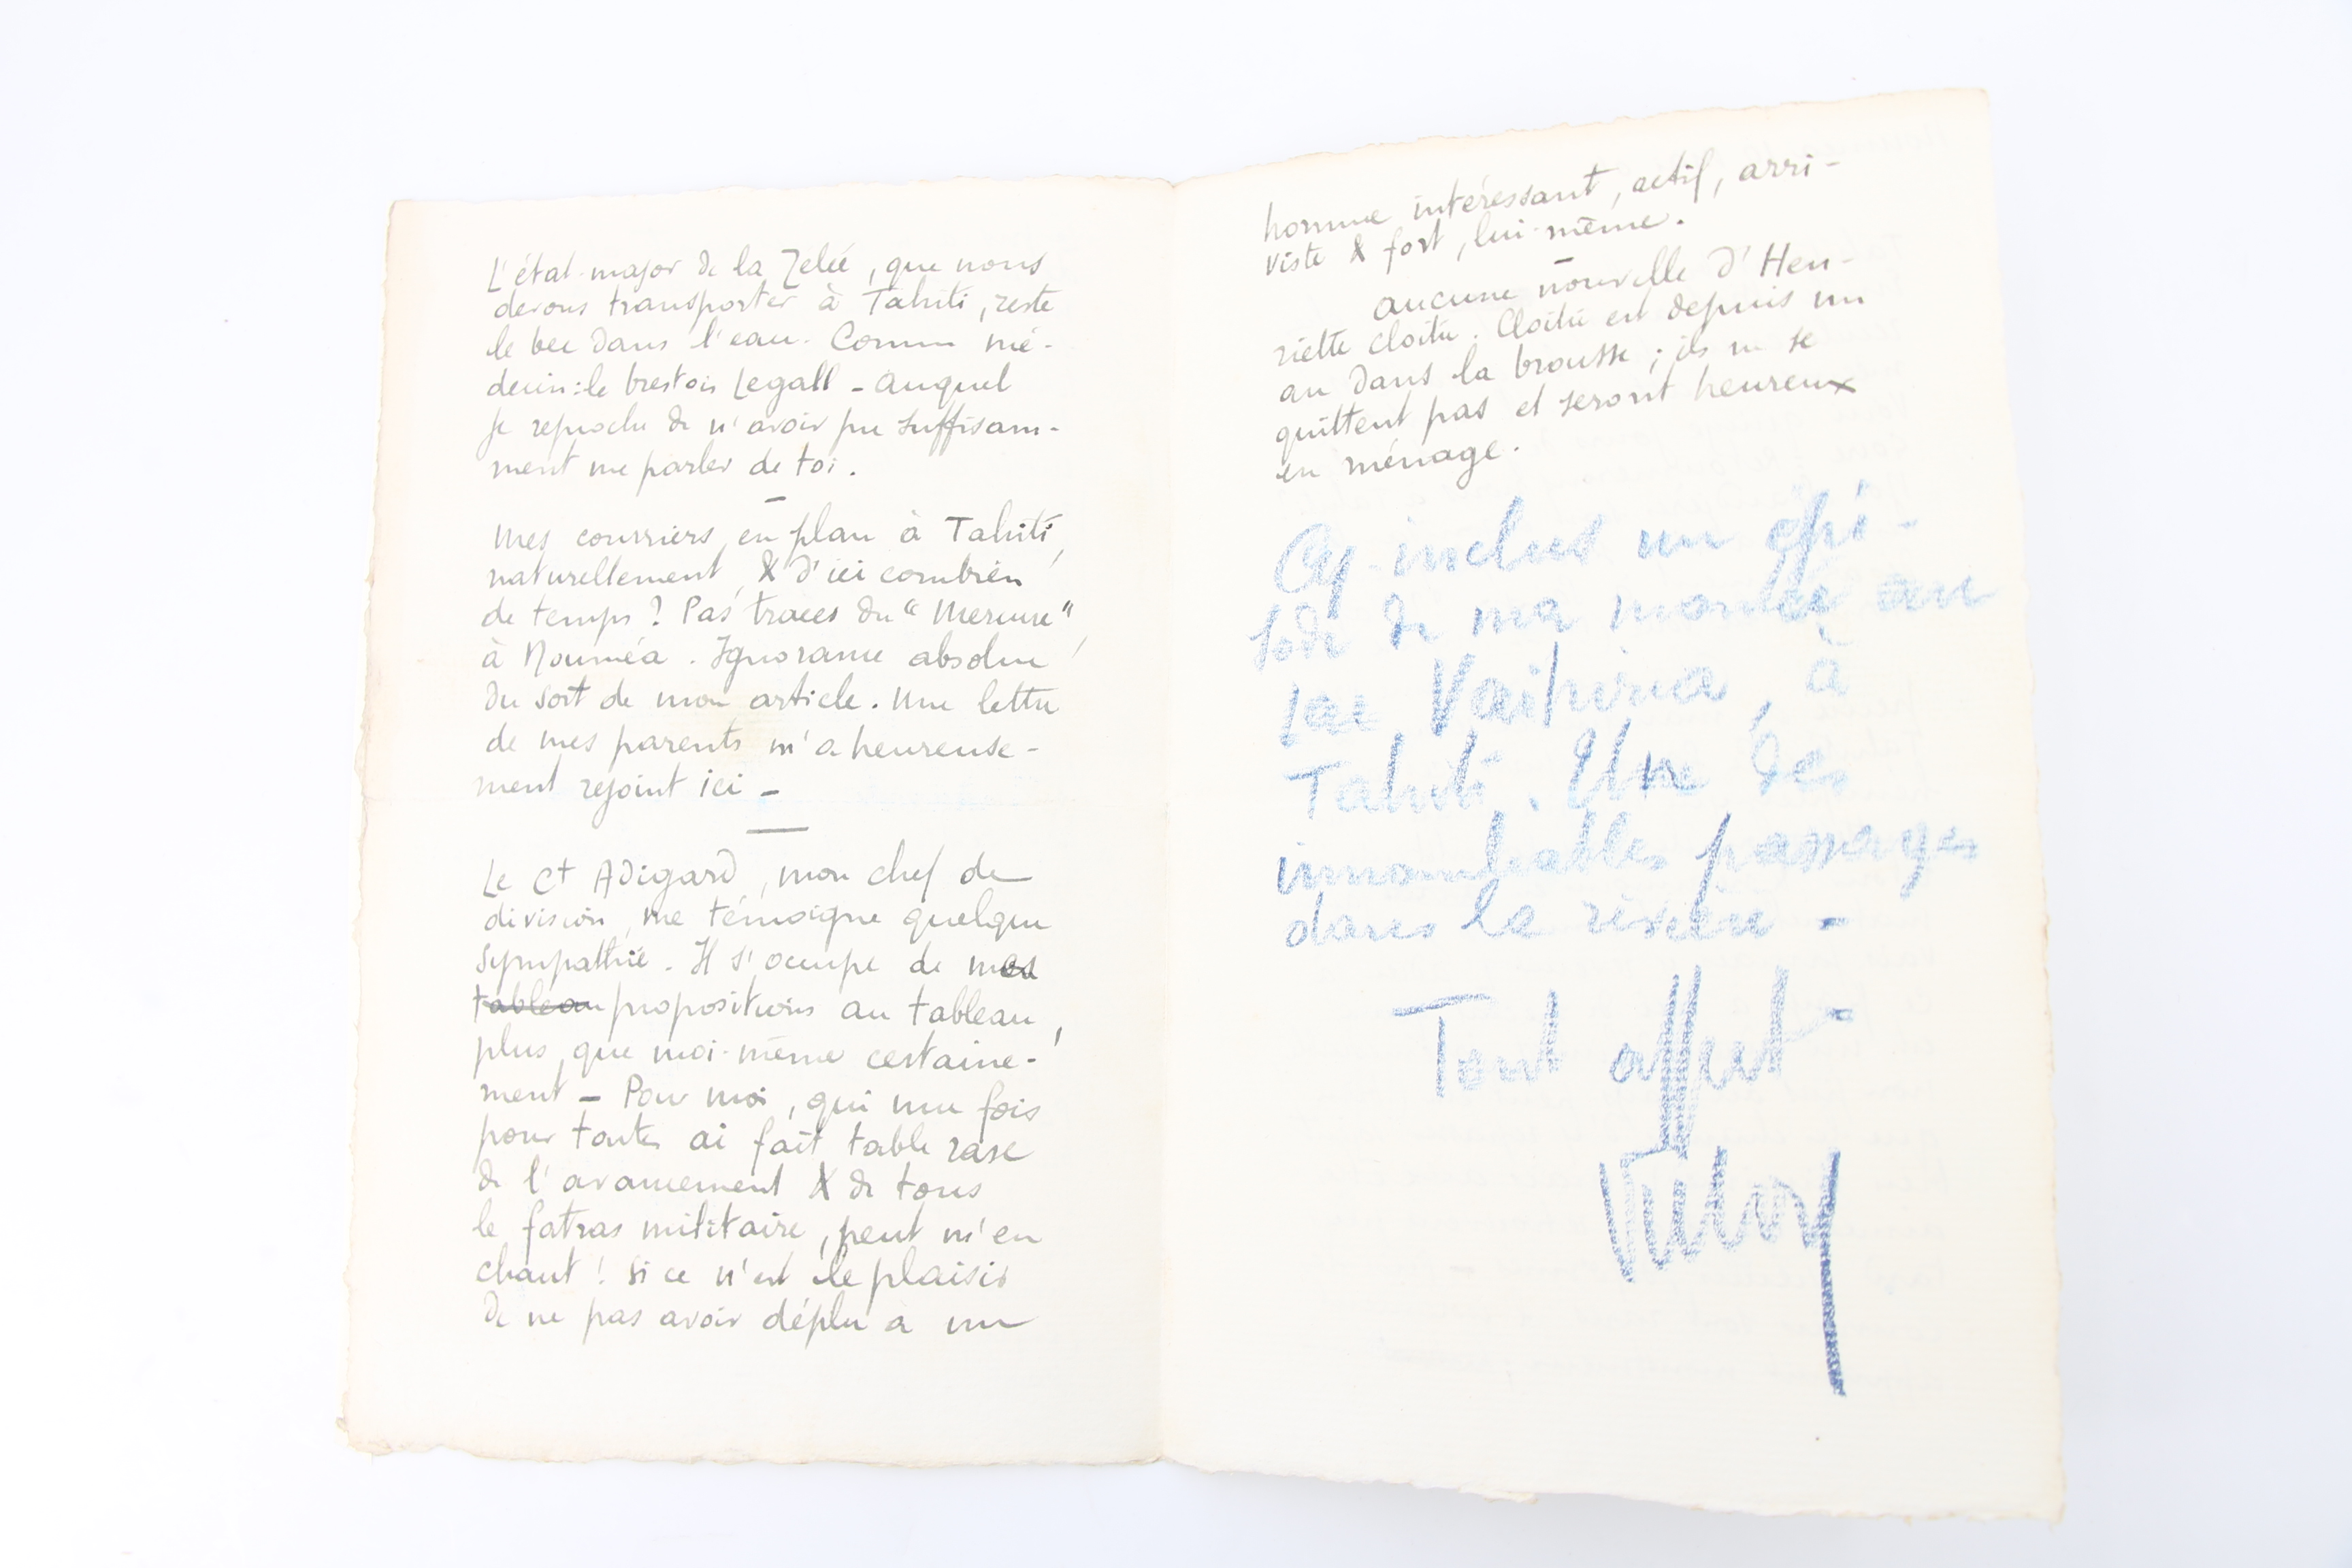 L'état-major de la Zélée, que nous
devons transporter à Tahiti, reste
le bec dans l'eau. Comm mé-
decin : le brestois Legall – auquel
je reproche de n'avoir pu suffisam-
ment me parler de toi.
–
Mes courriers, en plan à Tahiti,
naturellement, & d'ici combien
de temps ? Pas traces du "Mercure"
à Nouméa. Ignorance absolue
du sort de mon article. Une lettre
de mes parents m'a heureuse-
ment rejoint ici –
—
Le Ct Adigard, mon chef de
division, me témoigne quelque
sympathie. Il s'occupe de mes
tableau propositions au tableau,
plus que moi-même certaine-
ment – Pour moi, qui une fois
pour toutes ai fait table rase
de l'avancement & de tous
le fatras militaire, peut m'en
chaut ! Si ce n'est le plaisir
de ne pas avoir déplu à un
homme intéressant, actif, arri-
viste & fort, lui-même.
–
Aucune nouvelle d'Hen-
riette Cloître. Cloître est depuis un
an dans la brousse ; ils ne se
quittent pas et seront heureux
en ménage.
Cy-inclus un épi-
sode de ma montée au
lac Vaihiria, à
Tahiti. Une des
innombrables passages
dans la rivière –
Tout affect–
Victor